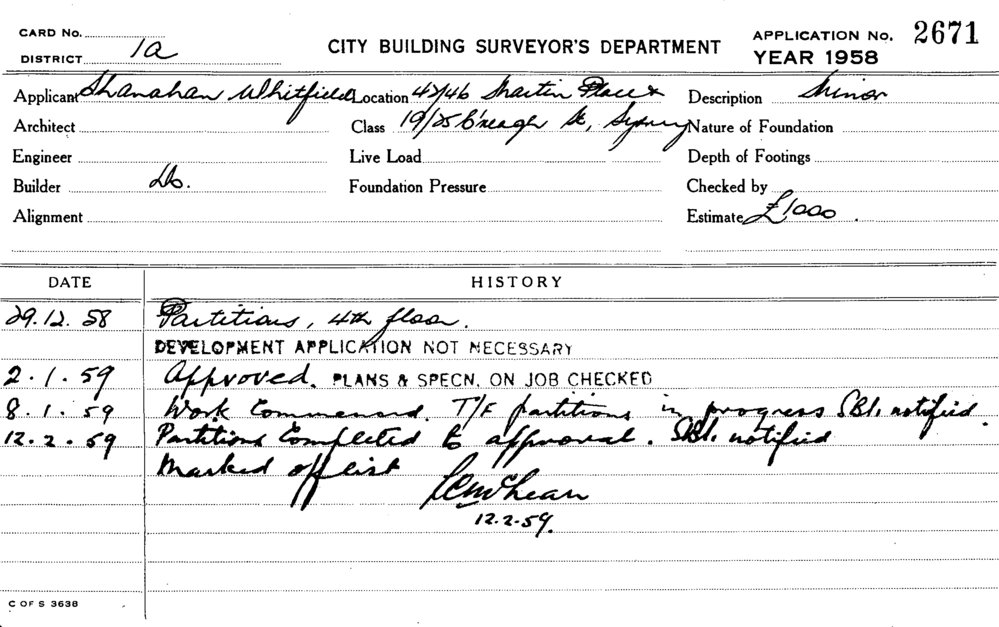 CARD No.
DISTRICT 1a
CITY BUILDING SURVEYOR'S DEPARTMENT
APPLICATION No. 2671
YEAR 1958
Applicant Shanahan Whitfield Location 42/46 Martin Place & Description Minor
Architect Class 19/25 C'reagh St, Sydney Nature of Foundation
Engineer Live Load Depth of Footings
Builder Do. Foundation Pressure Checked by
Alignment Estimate £1000.
DATE HISTORY
29.12.58 Partitions, 4th floor.
DEVELOPMENT APPLICATION NOT NECESSARY
2.1.59 Approved. PLANS & SPECN. ON JOB CHECKED
8.1.59 Work Commenced. T/F partitions in progress SBI. notified.
12.2.59 Partitions Completed to approval. SBI. notified
Marked off list
12.2.59.
C OF S 3638